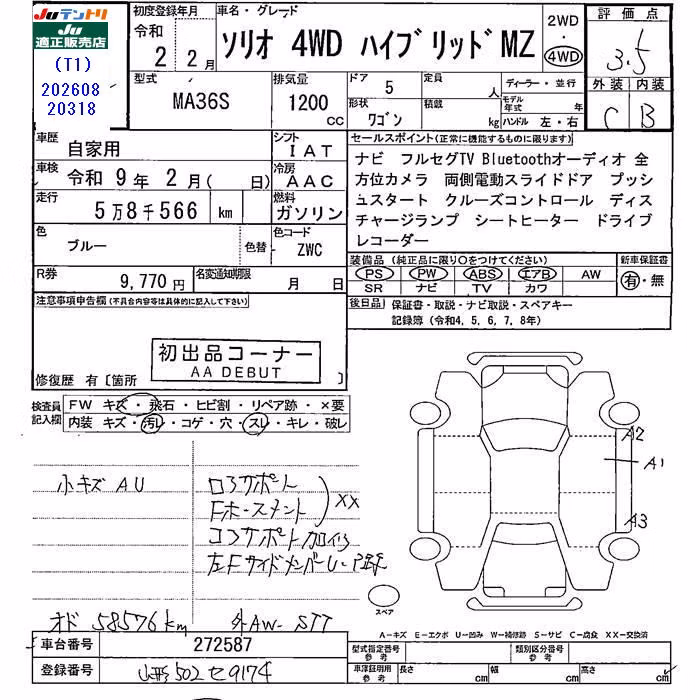 Juテントリ
Ju
適正販売店
(T1)
202608
20318
初度登録年月
令和
2年 2月
車名・グレード
ソリオ 4WD ハイブリッド MZ
2WD
・
4WD
評価点
3.5
外装 内装
C B
型式
MA36S
排気量
1200
CC
ドア 5
形状
ワゴン
定員
人
積載
kg
ディーラー・並行
モデル年式 年
ハンドル 左・右
車歴
自家用
シフト
IAT
車検
令和 9年 2月( 日)
冷房
AAC
走行
5万8千566 km
燃料
ガソリン
色
ブルー
色替
色コード
ZWC
R券
9,770円
名変通知期限
月 日
セールスポイント(正常に機能するものに限ります)
ナビ フルセグTV Bluetoothオーディオ 全
方位カメラ 両側電動スライドドア プッシ
ュスタート クルーズコントロール ディス
チャージランプ シートヒーター ドライブ
レコーダー
装備品(純正品に限り〇をつけてください)
新車保証書
PS PW ABS エアB AW
SR ナビ TV カワ
有・無
後日品 保証書・取説・ナビ取説・スペアキー
記録簿(令和4,5,6,7,8年)
注意事項申告欄(不具合内容等は具体的に記入して下さい)
初出品コーナー
AA DEBUT
修復歴 有[箇所 ]
検査員
記入欄
FW キズ・飛石・ヒビ割・リペア跡・×要
内装 キズ・汚レ・コゲ・穴・スレ・キレ・破レ
小キズ AU
ロアサポート
Fホースメント
XX
コアサポート加修
左Fサイドメンバー U-P跡
オド 58576km
外AW- STT
A2
A1
A3
スペア
A-キズ E-エクボ U-凹み W-補修跡 S-サビ C-腐食 XX-交換済
車台番号
272587
登録番号
山形502せ9174
型式指定番号
参考
類別区分番号
参考
車庫証明用
参考
長さ
cm
幅
cm
高さ
cm